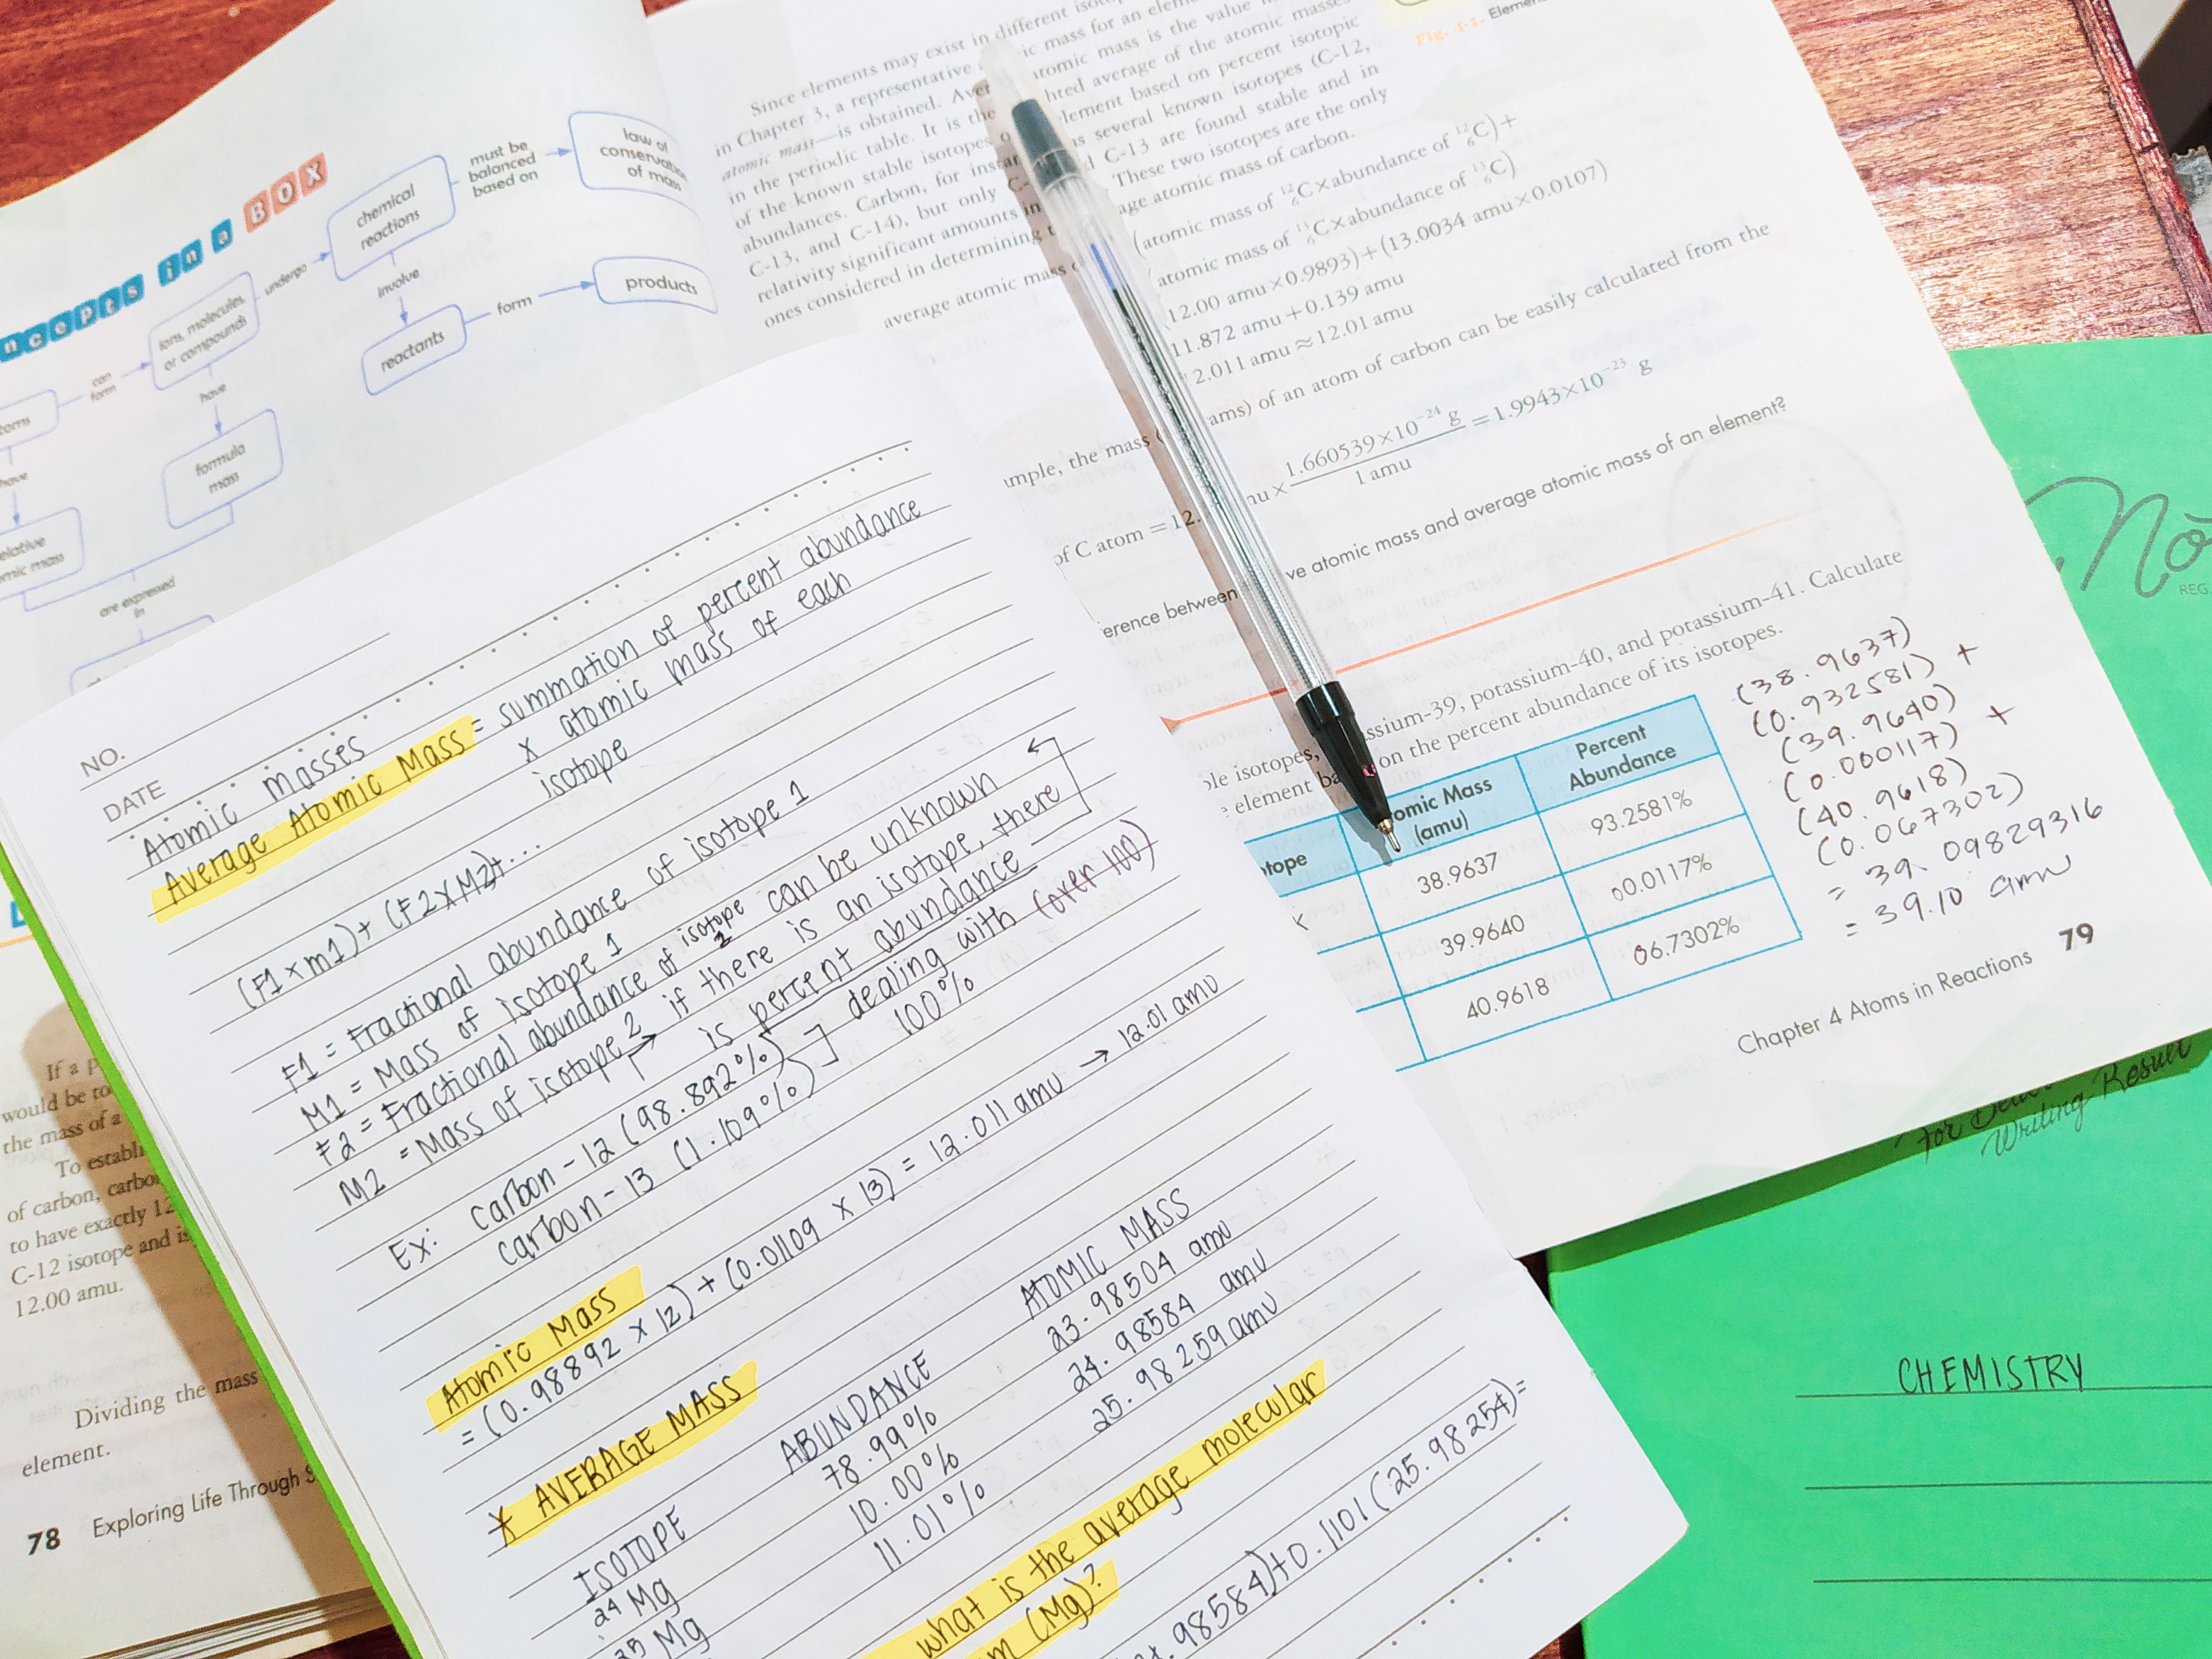 ncepts in a BOX
toms
can form
ions, molecules, or compounds
undergo
chemical reactions
must be balanced based on
law of conservation of mass
involve
reactants
form
products
have
have
formula mass
elative
mic mass
are expressed in
If a p
would be to
the mass of a
To establi
of carbon, carbo
to have exactly 12
C-12 isotope and is
12.00 amu.
Dividing the mass
element.
78 Exploring Life Through S
Since elements may exist in different
in Chapter 3, a representative ic mass for an elem
atomic mass—is obtained. Aver tomic mass is the value
in the periodic table. It is the hted average of the atomic masses
of the known stable isotopes o element based on percent isotopic
abundances. Carbon, for instan s several known isotopes (C-12,
C-13, and C-14), but only C- d C-13 are found stable and in
relativity significant amounts in These two isotopes are the only
ones considered in determining t age atomic mass of carbon.
average atomic mass (atomic mass of ¹²₆C×abundance of ¹²₆C)+
atomic mass of ¹³₆C×abundance of ¹³₆C)
12.00 amu×0.9893)+(13.0034 amu×0.0107)
11.872 amu+0.139 amu
2.011 amu≈12.01 amu
ample, the mass ams) of an atom of carbon can be easily calculated from the
of C atom =12. mu× 1.660539×10⁻²⁴ g / 1 amu =1.9943×10⁻²³ g
erence between ve atomic mass and average atomic mass of an element?
ble isotopes, assium-39, potassium-40, and potassium-41. Calculate
e element ba on the percent abundance of its isotopes.
tope omic Mass (amu) Percent Abundance
38.9637 93.2581%
39.9640 00.0117%
40.9618 06.7302%
(38.9637)
(0.932581) +
(39.9640)
(0.000117) +
(40.9618)
(0.067302)
= 39.09829316
= 39.10 amu
Chapter 4 Atoms in Reactions 79
Fig. 4-1. Elemen
NO.
DATE
Atomic masses
Average Atomic Mass = summation of percent abundance
x atomic mass of each
isotope
(F1 x m1) + (F2 x M2)+...
F1 = Fractional abundance of isotope 1
M1 = Mass of isotope 1
F2 = Fractional abundance of isotope 2 can be unknown
M2 = Mass of isotope 2 → if there is an isotope, there
is percent abundance
Ex: carbon-12 (98.892%) dealing with (over 100)
carbon-13 (1.109%) 100%
Atomic Mass
= (0.98892 x 12) + (0.01109 x 13) = 12.011 amu → 12.01 amu
* AVERAGE MASS
ISOTOPE ABUNDANCE ATOMIC MASS
24 Mg 78.99% 23.98504 amu
25 Mg 10.00% 24.98584 amu
11.01% 25.98259 amu
what is the average molecular
m (Mg)?
.98584)+0.1101(25.98254)=
Nò
REG.
Writing Result
CHEMISTRY